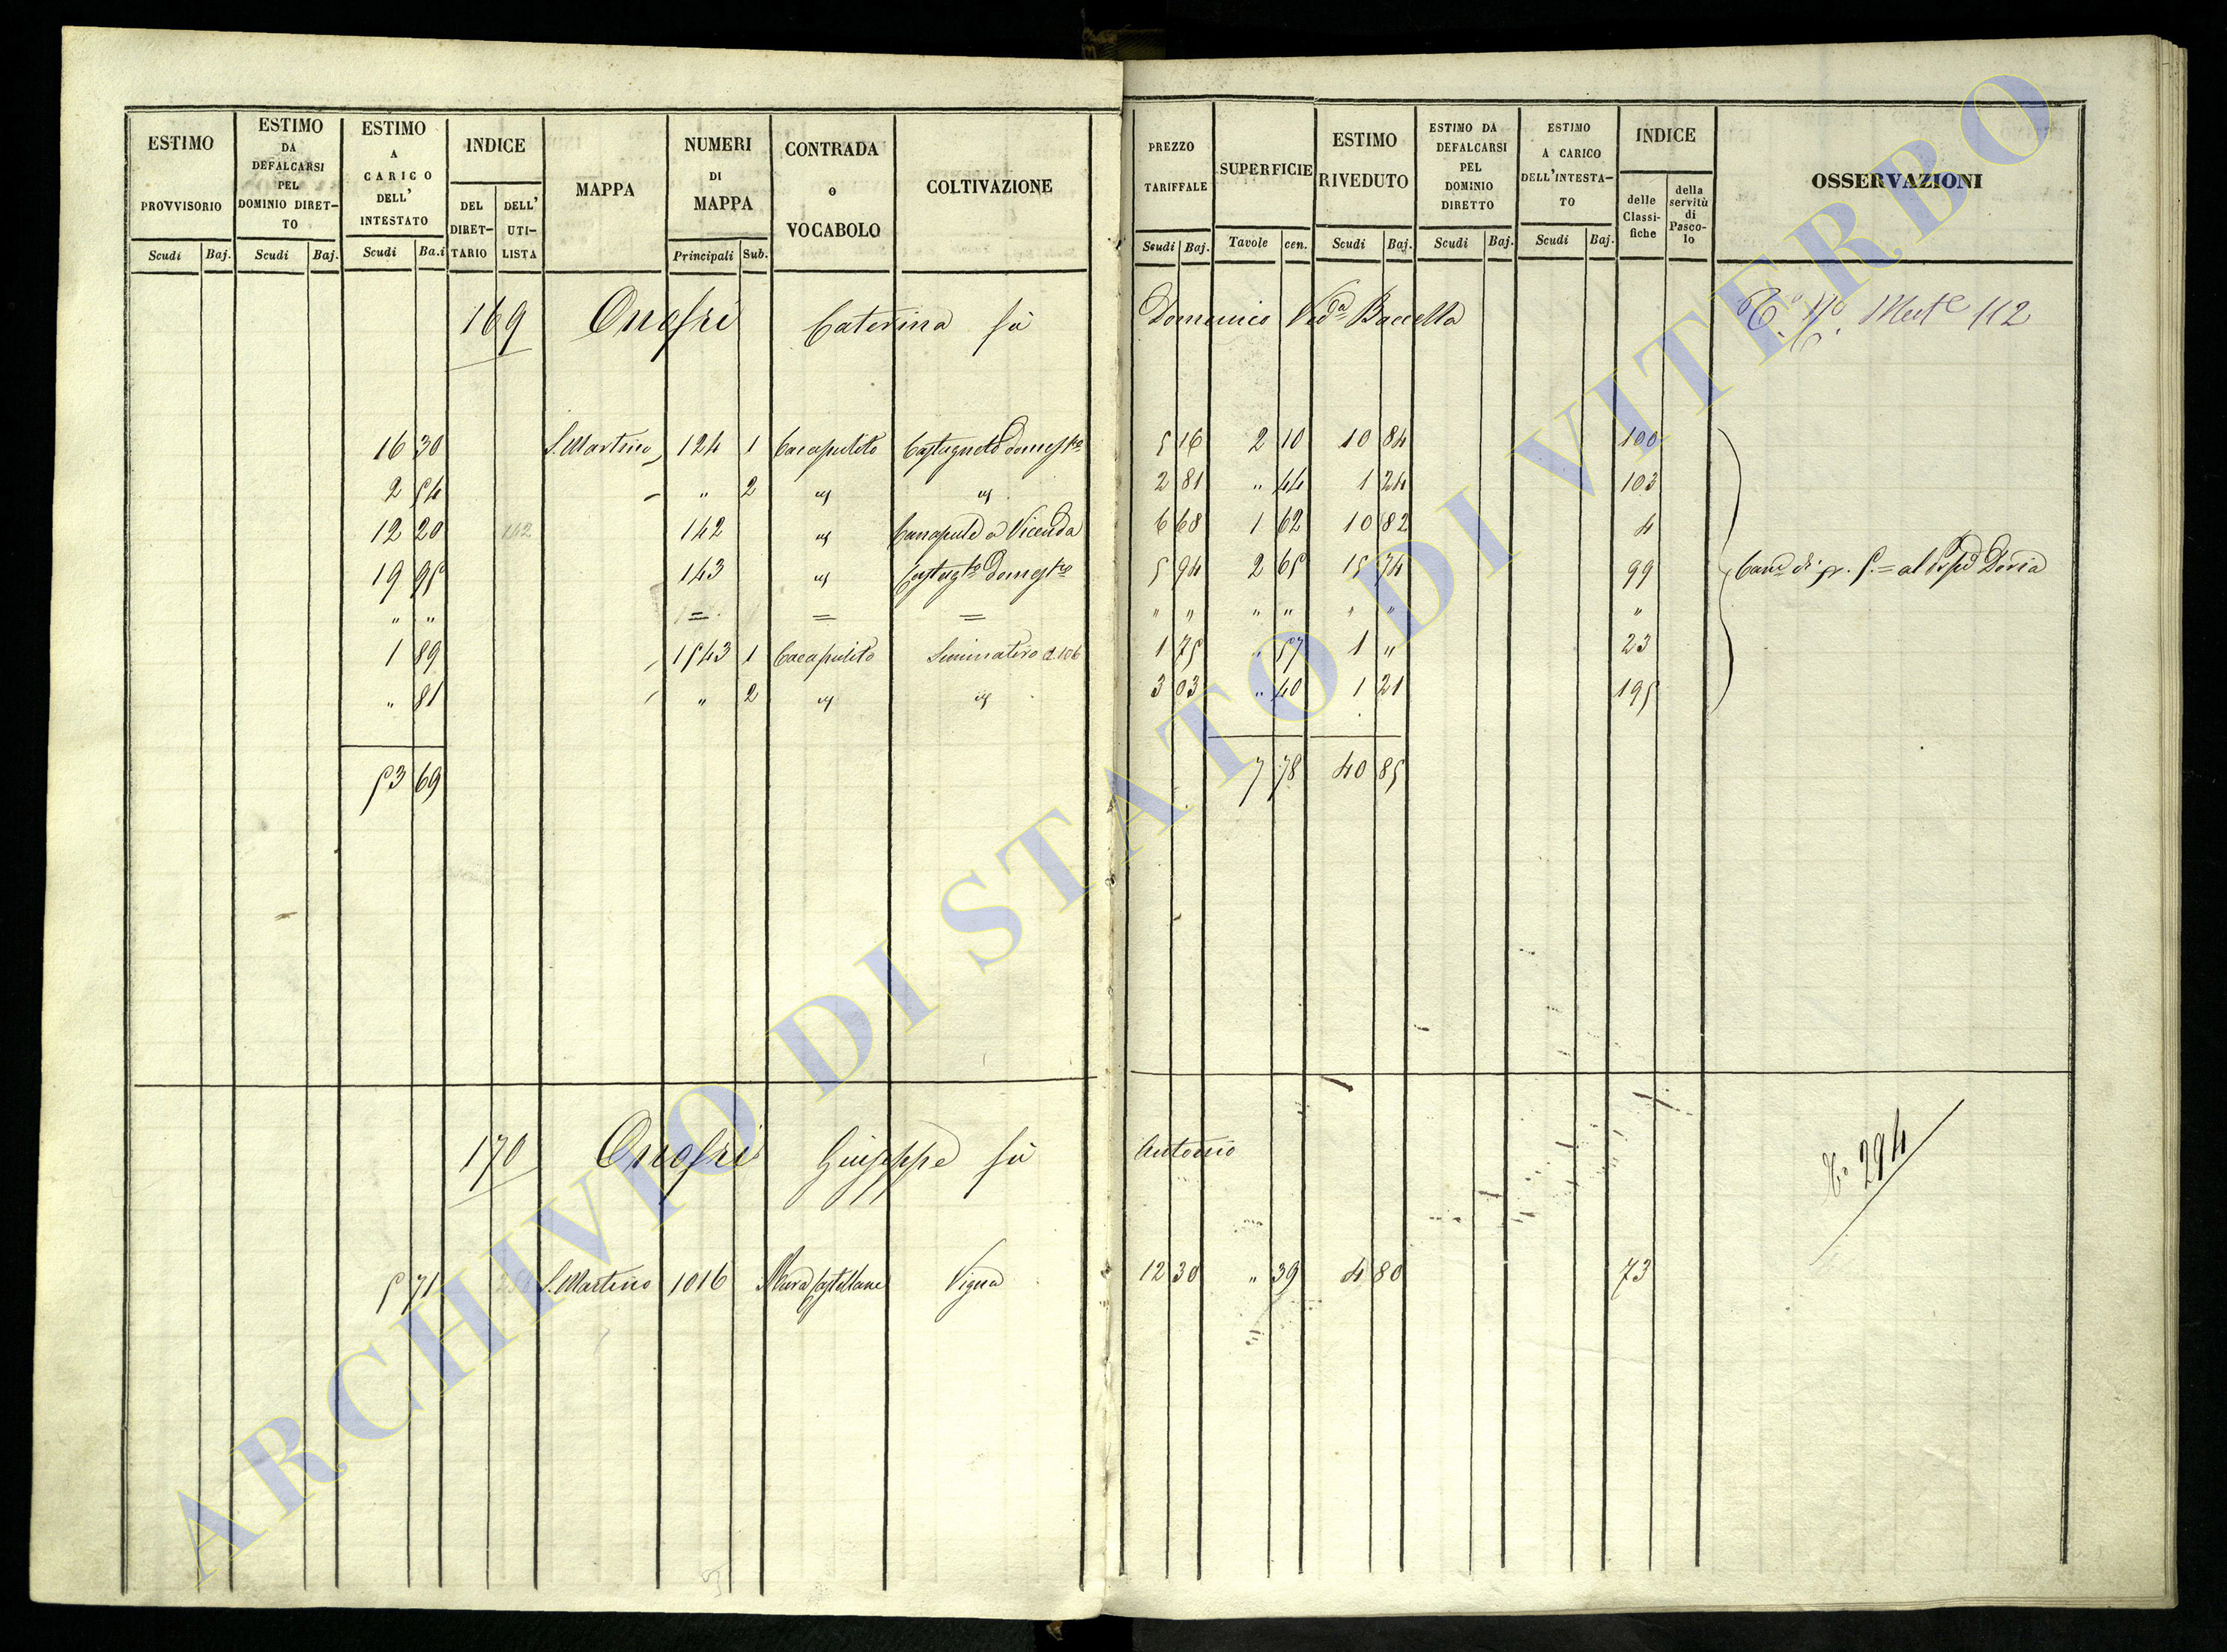 ESTIMO PROVVISORIO
Scudi Baj.
ESTIMO DA DEFALCARSI PEL DOMINIO DIRET- TO
Scudi Baj.
ESTIMO A CARICO DELL' INTESTATO
Scudi Ba.i
INDICE
DEL DIRET- TARIO
DELL' UTI- LISTA
MAPPA
NUMERI DI MAPPA
Principali Sub.
CONTRADA o VOCABOLO
COLTIVAZIONE
PREZZO TARIFFALE
Scudi Baj.
SUPERFICIE
Tavole cen.
ESTIMO RIVEDUTO
Scudi Baj.
ESTIMO DA DEFALCARSI PEL DOMINIO DIRETTO
Scudi Baj.
ESTIMO A CARICO DELL'INTESTA- TO
Scudi Baj.
INDICE
delle Classi- fiche
della servitù di Pasco- lo
OSSERVAZIONI
169 Onofri Caterina fù Domenico Ved.a Baccella 112
16 30 S. Martino 124 1 Cacapulito Castagneto domest.co 5 16 2 10 10 84 100
2 54 " 2 " " 2 81 " 44 1 24 103
12 20 142 142 " Canapule a Vicenda 6 68 1 62 10 82 4
19 95 143 " Castag.to Domest.co 5 94 2 65 15 74 99 al Doria
" " = = = " " " " " " "
1 89 1543 1 Cacapulito Seminativo d. 106 1 75 " 57 1 " 23
" 81 " 2 " " 3 03 " 40 1 21 195
53 69 7 78 40 85
170 Onofri Giuseppe fù Antonio 294
5 71 S. Martino 1016 Mura Castellane Vigna 12 30 " 39 4 80 73
ARCHIVIO DI STATO DI VITERBO